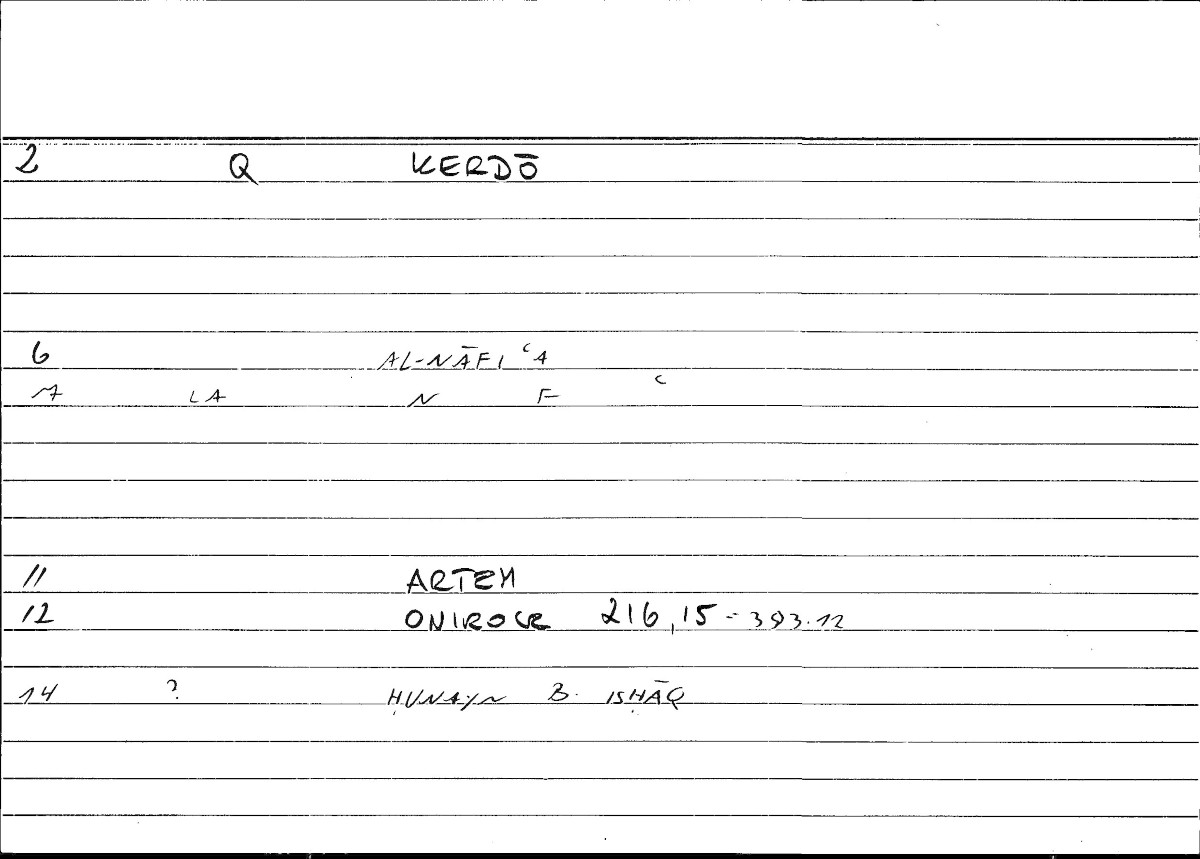 2 Q KERDŌ
6 AL-NĀFIʿA
7 LA N F ʿ
11 ARTEM
12 ONIROCR 216,15-393.12
14 ? ḤUNAYN B. ISḤĀQ